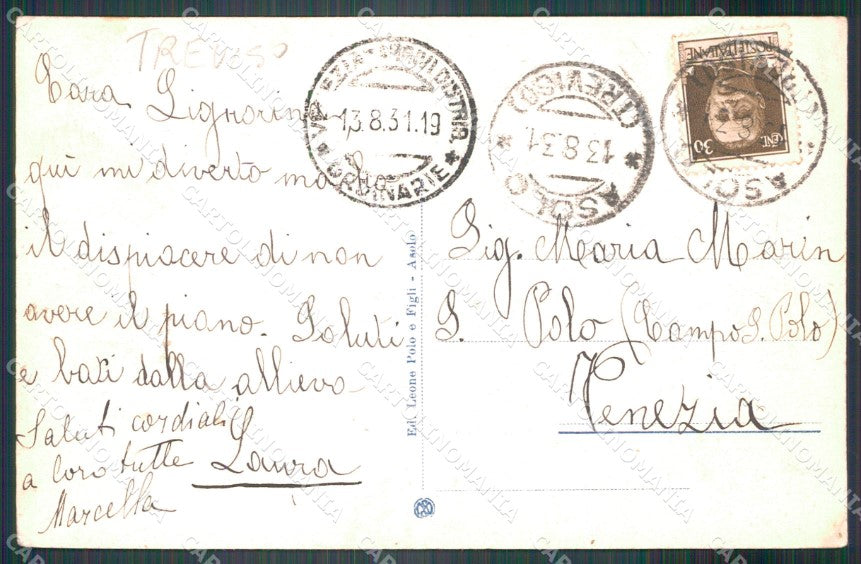 TREVISO
Cara Signorina
qui mi diverto ma ho
il dispiacere di non
avere il piano. Saluti
e baci dalla allieva
Laura
Saluti cordiali
a loro tutte
Marcella
VENEZIA - ARRIVI DISTRIB.
13.8.31.19
ORDINARIE
ASOLO
13.8.31
(TREVISO)
ASOLO
(TREVISO)
POSTE ITALIANE
CENT. 30
Ed. Leone Polo e Figli - Asolo
Sig. Maria Marin
S. Polo (Campo S. Polo)
Venezia
CARTOLINOMANIA